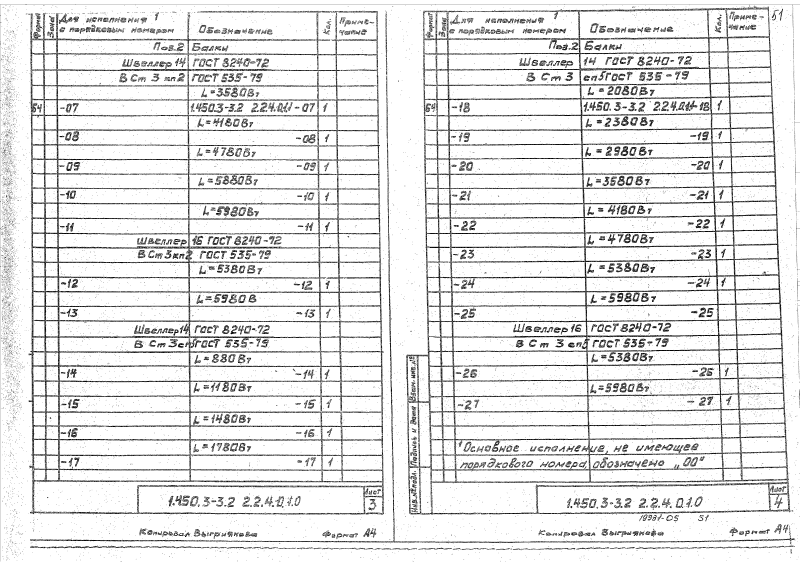 Формат Зона Для исполнения 1 с порядковым номером Обозначение Кол. Приме-чание
Поз.2 Балки
Швеллер 14 ГОСТ 8240-72
В Ст 3 кп2 ГОСТ 535-79
L=3580Вт
64 -07 1.450.3-3.2 2.2.4.0.1.1-07 1
L=4180Вт
-08 -08 1
L=4780Вт
-09 -09 1
L=5880Вт
-10 -10 1
L=5980Вт
-11 -11 1
Швеллер 16 ГОСТ 8240-72
В Ст 3кп2 ГОСТ 535-79
L=5380Вт
-12 -12 1
L=5980В
-13 -13 1
Швеллер14 ГОСТ 8240-72
В Ст 3сп5 ГОСТ 535-79
L=880Вт
-14 -14 1
L=1180Вт
-15 -15 1
L=1480Вт
-16 -16 1
L=1780Вт
-17 -17 1
1.450.3-3.2 2.2.4.0.1.0
Лист 3
Копировал Выгриянова Формат А4
51
Формат Зона Для исполнения 1 с порядковым номером Обозначение Кол. Приме-чание
Поз.2 Балки
Швеллер 14 ГОСТ 8240-72
В Ст 3 сп5 ГОСТ 535-79
L=2080Вт
64 -18 1.450.3-3.2 2.2.4.0.1.1-18 1
L=2380Вт
-19 -19 1
L=2980Вт
-20 -20 1
L=3580Вт
-21 -21 1
L=4180Вт
-22 -22 1
L=4780Вт
-23 -23 1
L=5380Вт
-24 -24 1
L=5980Вт
-25 -25
Швеллер16 ГОСТ 8240-72
В Ст 3 сп5 ГОСТ 535-79
L=5380Вт
-26 -26 1
L=5980Вт
-27 -27 1
1 Основное исполнение, не имеющее
порядкового номера, обозначено „00"
Инв.№подл. Подпись и дата Взам.инв.№
1.450.3-3.2 2.2.4.0.1.0
Лист 4
19981-05 51
Копировал Выгриянова Формат А4